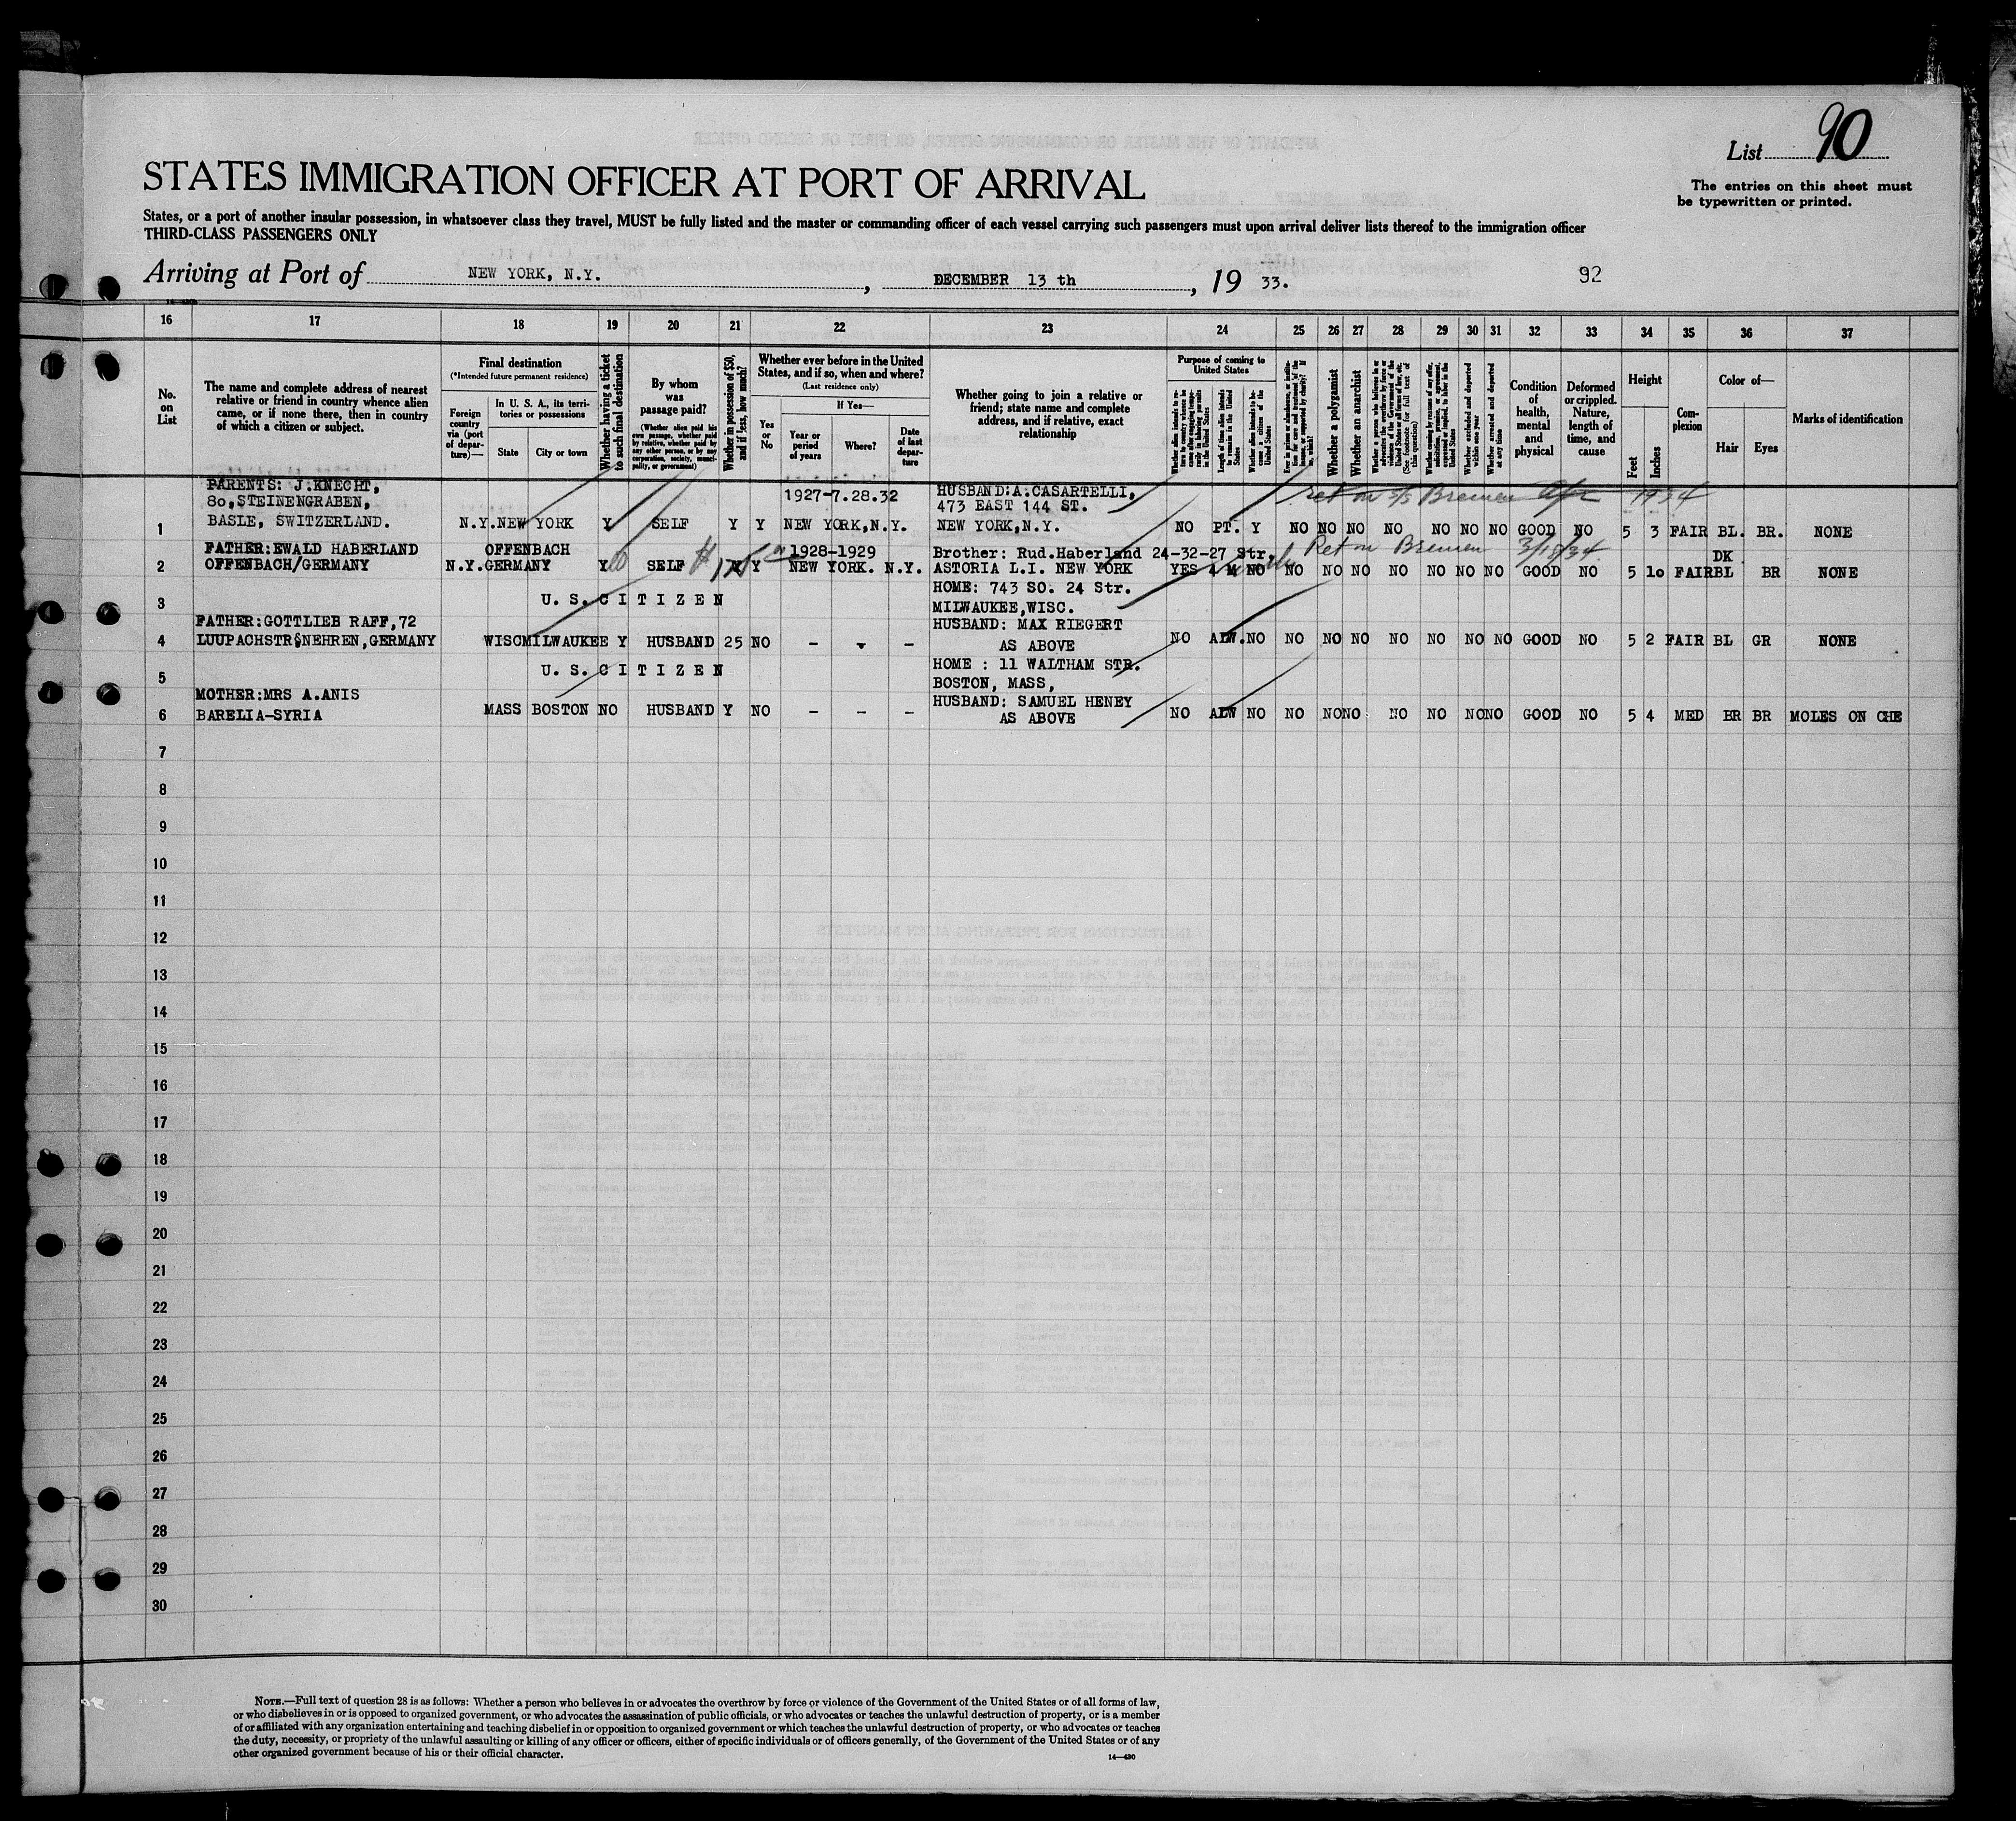 List 90
The entries on this sheet must
be typewritten or printed.
STATES IMMIGRATION OFFICER AT PORT OF ARRIVAL
States, or a port of another insular possession, in whatsoever class they travel, MUST be fully listed and the master or commanding officer of each vessel carrying such passengers must upon arrival deliver lists thereof to the immigration officer
THIRD-CLASS PASSENGERS ONLY
Arriving at Port of NEW YORK, N.Y., DECEMBER 13 th, 19 33. 92
16 17 18 19 20 21 22 23 24 25 26 27 28 29 30 31 32 33 34 35 36 37
No. on List
The name and complete address of nearest relative or friend in country whence alien came, or if none there, then in country of which a citizen or subject.
Final destination
(*Intended future permanent residence)
Foreign country via (port of departure)—
In U. S. A., its territories or possessions
State
City or town
Whether having a ticket to such final destination
By whom was passage paid?
(Whether alien paid his own passage, whether paid by relative, whether paid by any other person, or by any corporation, society, municipality, or government)
Whether in possession of $50, and if less, how much?
Whether ever before in the United States, and if so, when and where?
(Last residence only)
Yes or No
If Yes—
Year or period of years
Where?
Date of last departure
Whether going to join a relative or friend; state name and complete address, and if relative, exact relationship
Purpose of coming to United States
Whether alien intends to return to country whence he came after engaging temporarily in laboring pursuits in the United States
Length of time alien intends to remain in the United States
Whether alien intends to become a citizen of the United States
Whether a polygamist
Whether an anarchist
Whether excluded and deported within one year
Whether arrested and deported at any time
Condition of health, mental and physical
Deformed or crippled. Nature, length of time, and cause
Height
Feet
Inches
Complexion
Color of—
Hair
Eyes
Marks of identification
PARENTS: J.KNECHT, HUSBAND:A.CASARTELLI, ret on S/S Bremen Apr 1934
80,STEINENGRABEN, 1927-7.28.32 473 EAST 144 ST.
1 BASLE, SWITZERLAND. N.Y. NEW YORK Y SELF Y Y NEW YORK,N.Y. NEW YORK,N.Y. NO PT. Y NO NO NO NO NO NO NO GOOD NO 5 3 FAIR BL. BR. NONE
FATHER:EWALD HABERLAND OFFENBACH 1928-1929 Brother: Rud.Haberland 24-32-27 Str. Ret on Bremen 3/18/34 DK
2 OFFENBACH/GERMANY N.Y. GERMANY Y SELF Y Y NEW YORK. N.Y. ASTORIA L.I. NEW YORK YES 4 M NO NO NO NO NO NO NO NO GOOD NO 5 10 FAIR BL BR NONE
HOME: 743 SO. 24 Str.
3 U. S. C I T I Z E N MILWAUKEE,WISC.
FATHER:GOTTLIEB RAFF,72 HUSBAND: MAX RIEGERT
4 LUUPACHSTR,NEHREN,GERMANY WISC MILWAUKEE Y HUSBAND 25 NO - - - AS ABOVE NO ALW. NO NO NO NO NO NO NO NO GOOD NO 5 2 FAIR BL GR NONE
HOME : 11 WALTHAM STR.
5 U. S. C I T I Z E N BOSTON, MASS,
MOTHER:MRS A.ANIS HUSBAND: SAMUEL HENEY
6 BARELIA-SYRIA MASS BOSTON NO HUSBAND Y NO - - - AS ABOVE NO ALW NO NO NO NO NO NO NO NO GOOD NO 5 4 MED BR BR MOLES ON CHE
7
8
9
10
11
12
13
14
15
16
17
18
19
20
21
22
23
24
25
26
27
28
29
30
NOTE.—Full text of question 28 is as follows: Whether a person who believes in or advocates the overthrow by force or violence of the Government of the United States or of all forms of law,
or who disbelieves in or is opposed to organized government, or who advocates the assassination of public officials, or who advocates or teaches the unlawful destruction of property, or is a member
of or affiliated with any organization entertaining and teaching disbelief in or opposition to organized government or which teaches the unlawful destruction of property, or who advocates or teaches
the duty, necessity, or propriety of the unlawful assaulting or killing of any officer or officers, either of specific individuals or of officers generally, of the Government of the United States or of any
other organized government because of his or their official character.
14—430